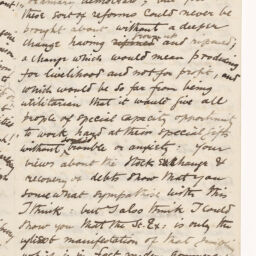 these sort of reforms could never be
brought about without a deeper
change having and ruined;
a change which would mean producing
for livelihood and not for profit, and
which would be so far from being
utilitarian that it would give all
people of special capacity opportunity
to work hard at their special gifts
without trouble or anxiety. Your
views about the Stock Exchange &
recovery of debts show that you
somewhat sympathise with this
I think: but I also think I could
show you that the St. Ex: is only the
manifestation of that
which is in fact